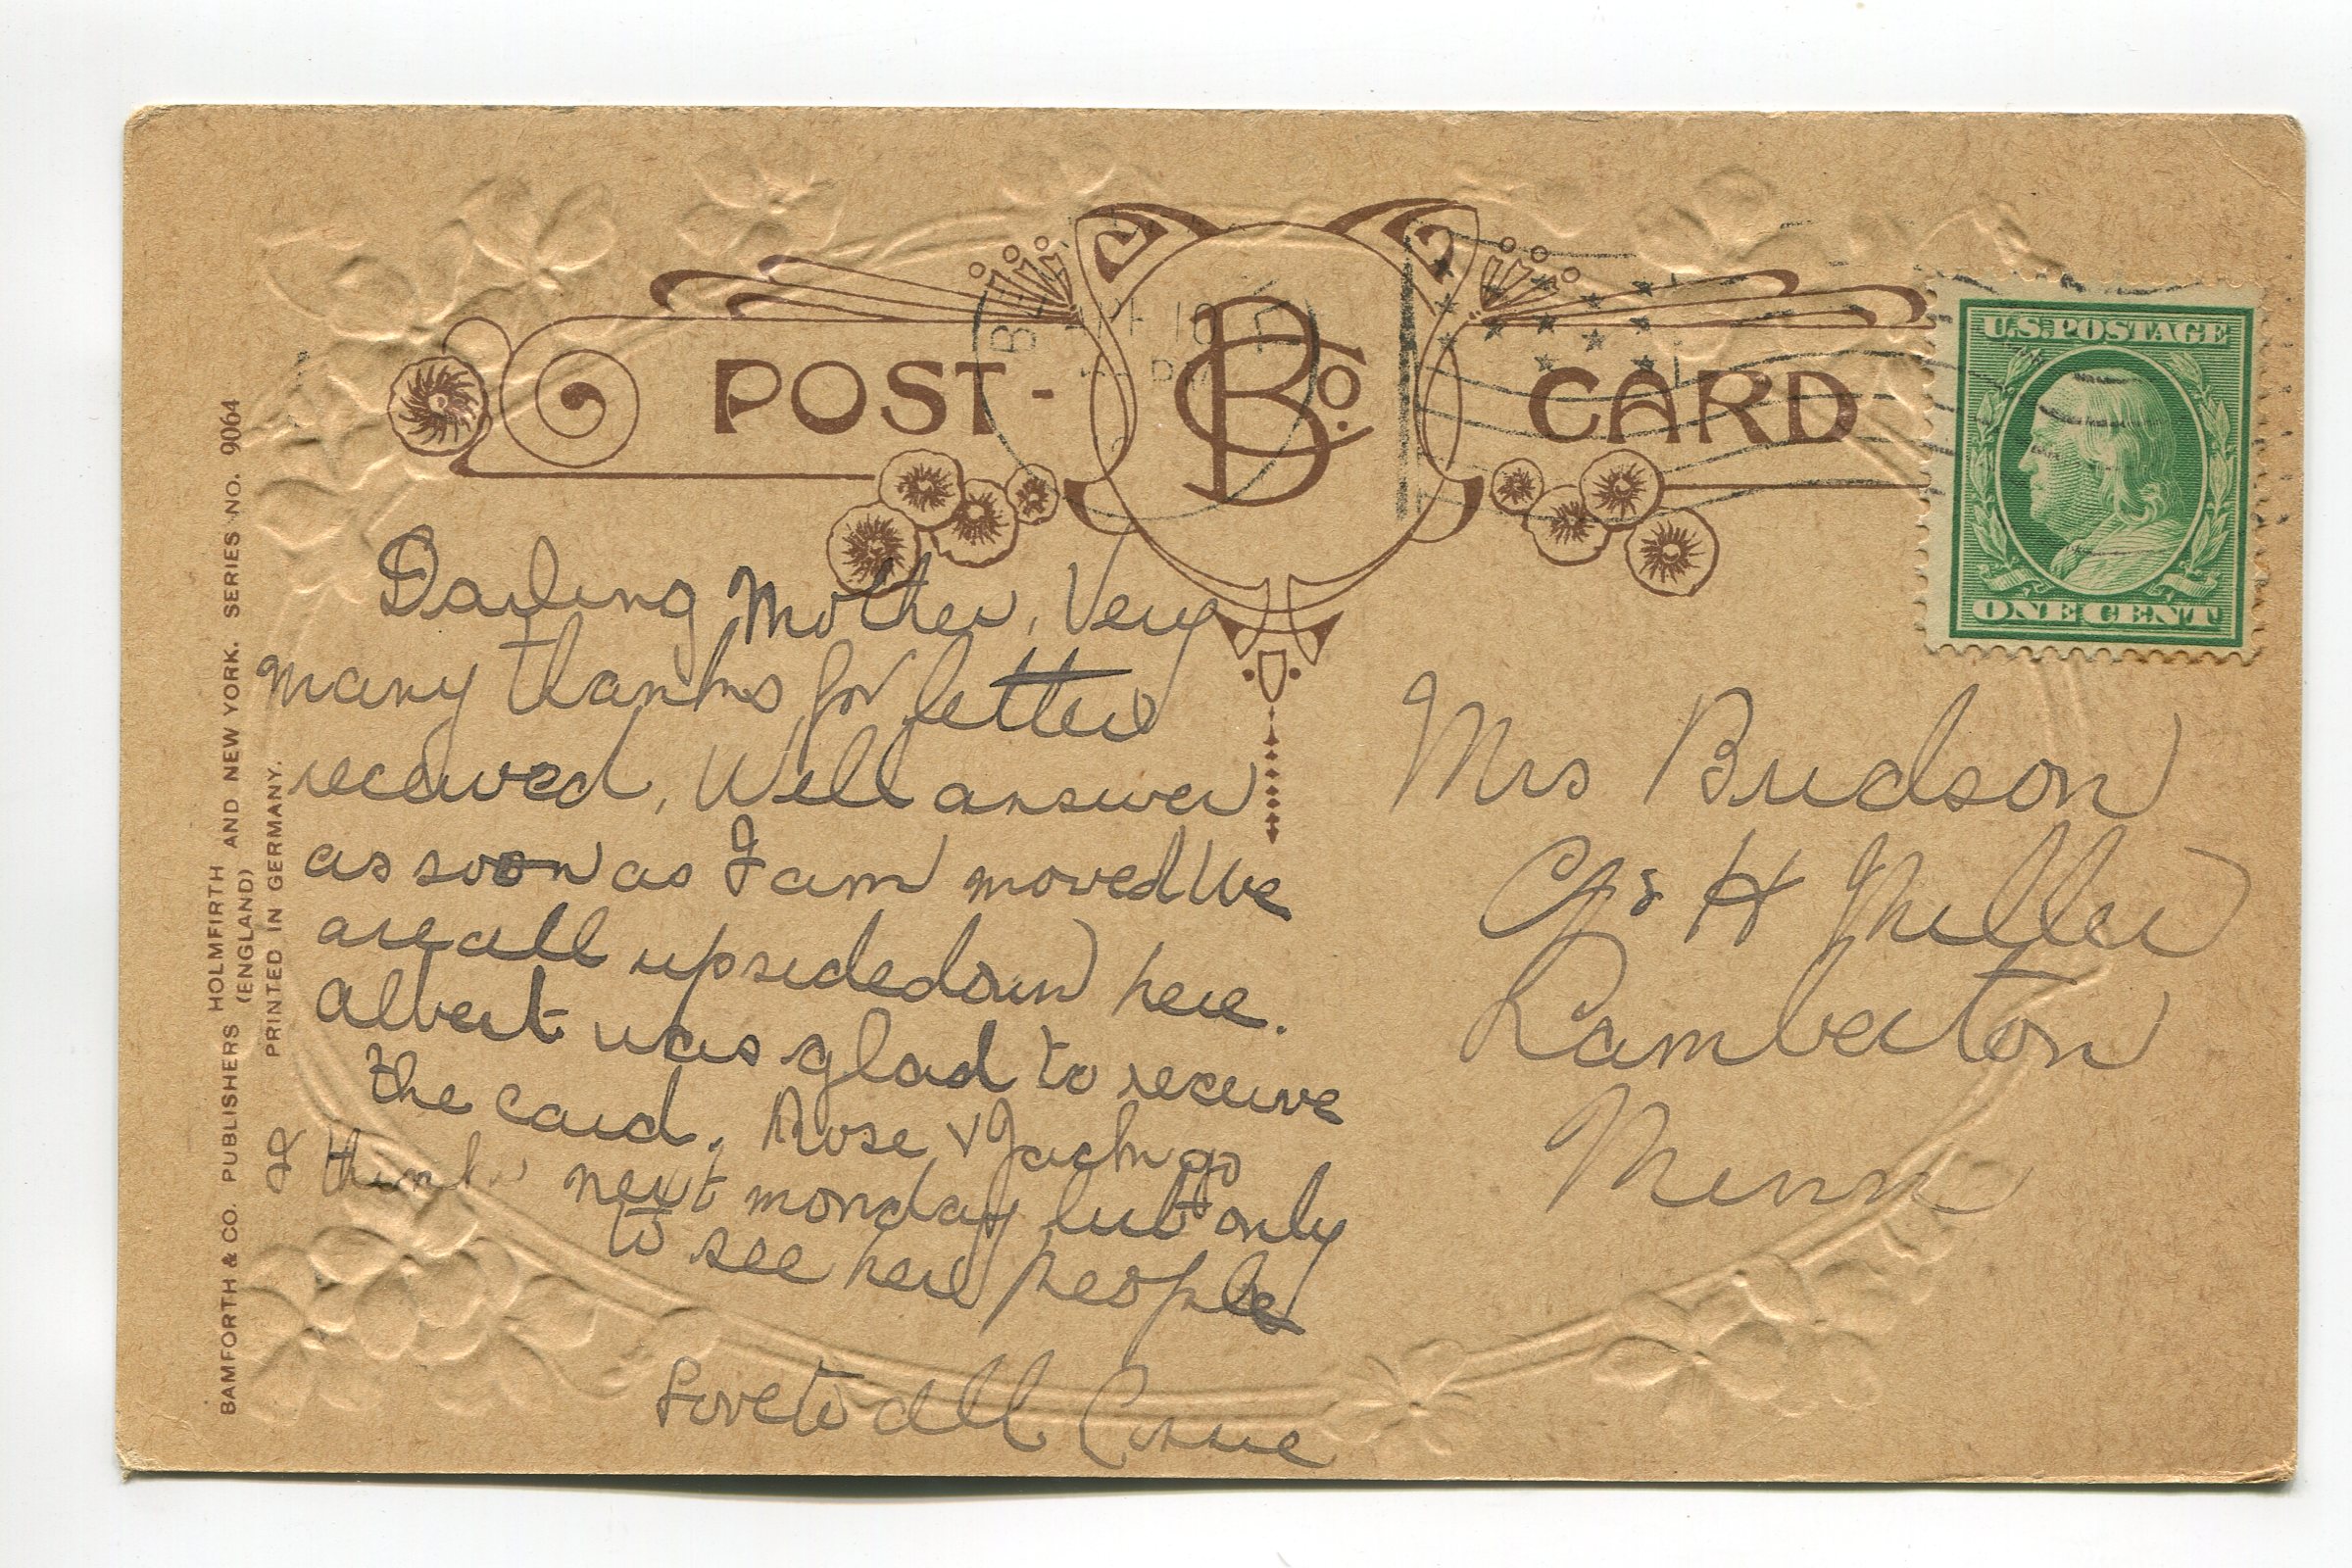 POST- B Co. CARD
U.S. POSTAGE
ONE CENT
Darling Mother, Very
many thanks for letter
received, Will answer
as soon as I am moved We
are all upsidedown here.
Albert was glad to receive
the card. Rose & Jack go
I think next monday but only
to see her people
Love to all
Mrs
H Miller
Lamberton
Minn
BAMFORTH & CO. PUBLISHERS HOLMFIRTH (ENGLAND) AND NEW YORK. SERIES NO. 9064
PRINTED IN GERMANY.